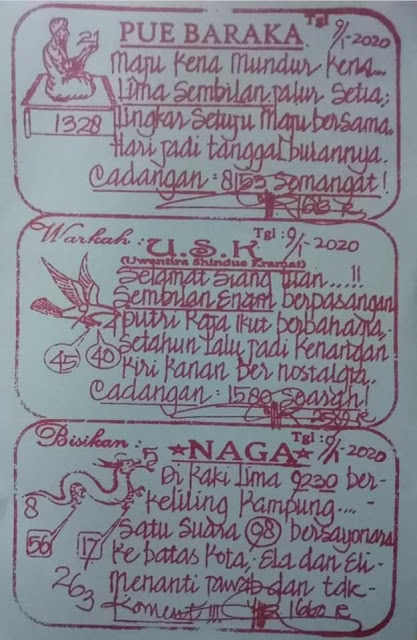 PUE BARAKA
Tgl 9/1-2020
21
1328
Maju Kena Mundur Kena...
Lima Sembilan jalur Setia;
Lingkar Setuju Maju bersama.
Hari jadi tanggal bulannya.
Cadangan = 8153 Somangat!
Warkah :
U.S.K
Tgl : 9/1-2020
(Uwentira Shindue Kramat)
Selamat Siang Tuan...!!
Sembilan Enam berpasangan
Putri Raja Ikut berbahagia,
45
40
Setahun lalu jadi Kenangan
Kiri Kanan ber nostalgia.
Cadangan = 1580
2589 R
Bisikan :
★NAGA★
Tgl : 9/1-2020
5
8
56
17
263
Di Kaki Lima 9230 ber-
Keliling Kampung.... -
Satu Suara 98 bersayonara
Ke batas Kota, Ela dan Eli-
Menanti jawab dan tak-
Koment !!!
1660 R